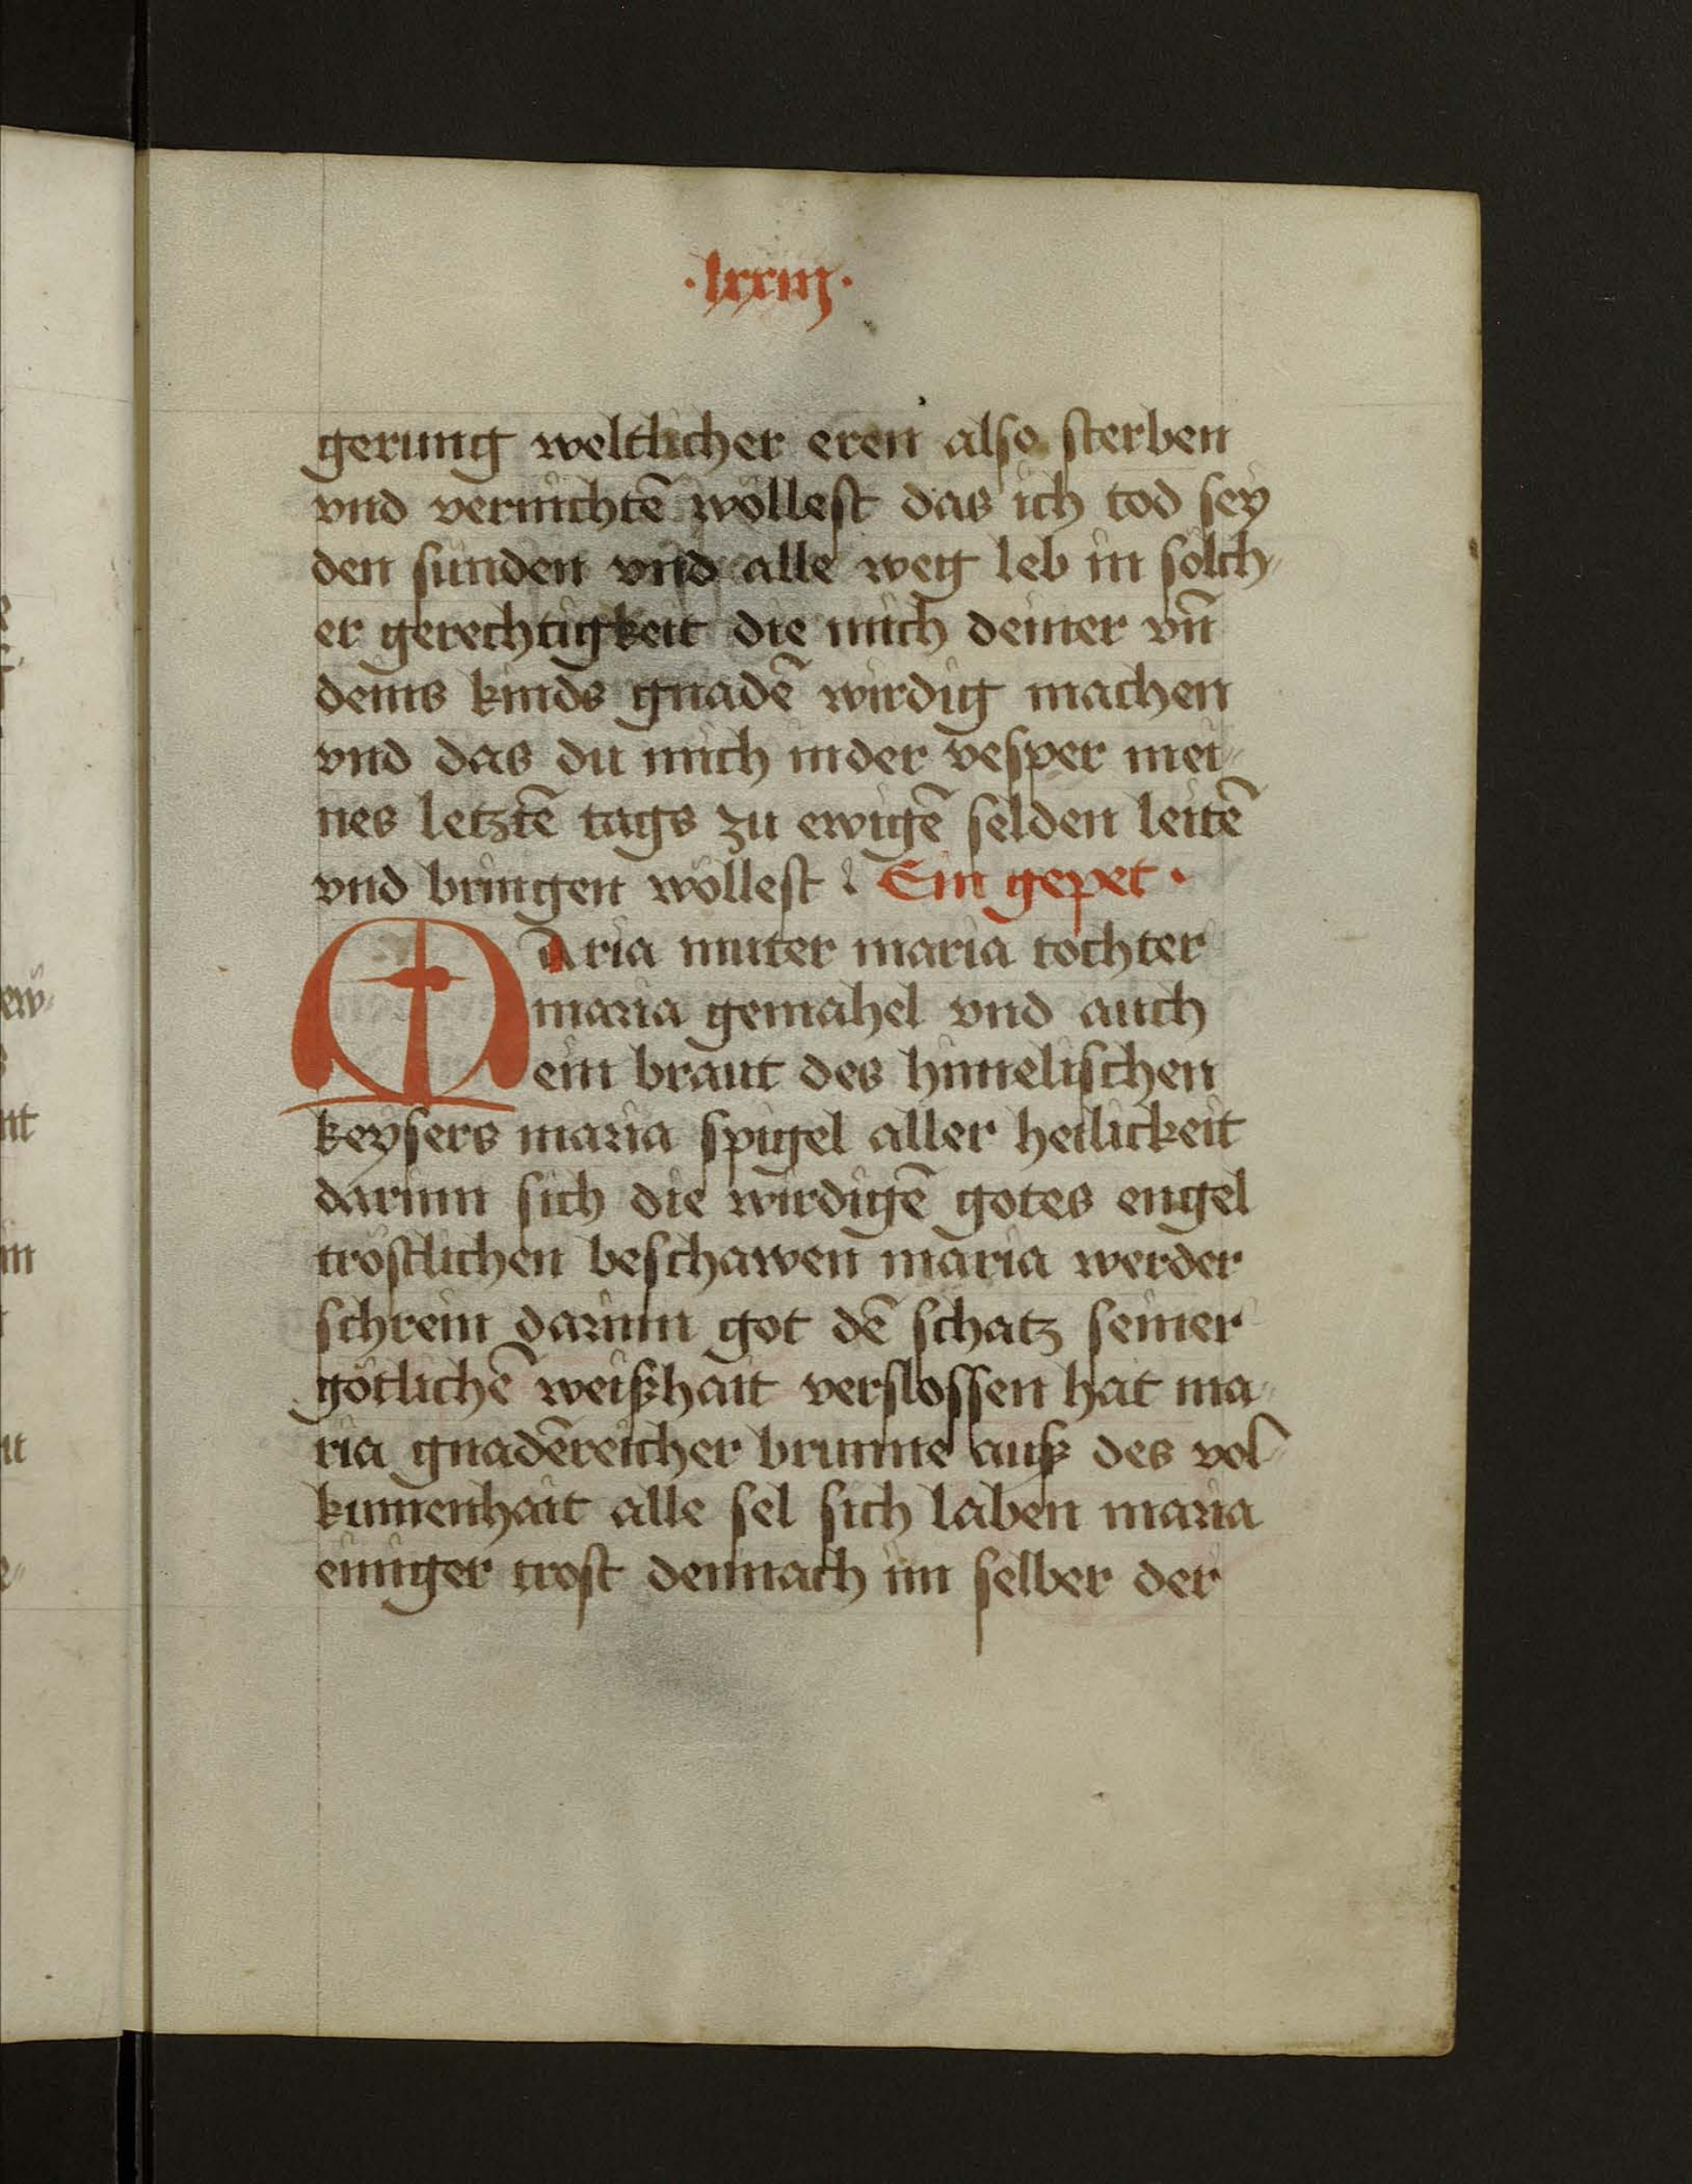 ·lxxiij·
gerung weltlicher eren also sterben
vnd vernichtē wöllest das ich tod sey
den sunden vnd alle weg leb in sölch⸗
er gerechtigkeit die mich deiner vn̄
deins kinds gnadē wirdig machen
vnd das du mich inder vesper mei⸗
nes letztē tags zu ewigē selden leitē
vnd bringen wöllest Ein gepet ·
Maria muter maria tochter
maria gemahel vnd auch
ein braut des himelischen
keysers maria spigel aller heilickeit
darinn sich die wirdigē gotes engel
tröstlichen beschawen maria werder
schrein darinn got dē schatz seiner
götlichē weißhait verslossen hat ma⸗
ria gnadēreicher brunne auß des vol⸗
kumenhait alle sel sich laben maria
einiger trost dennach im selber der
ew⸗
nt
in